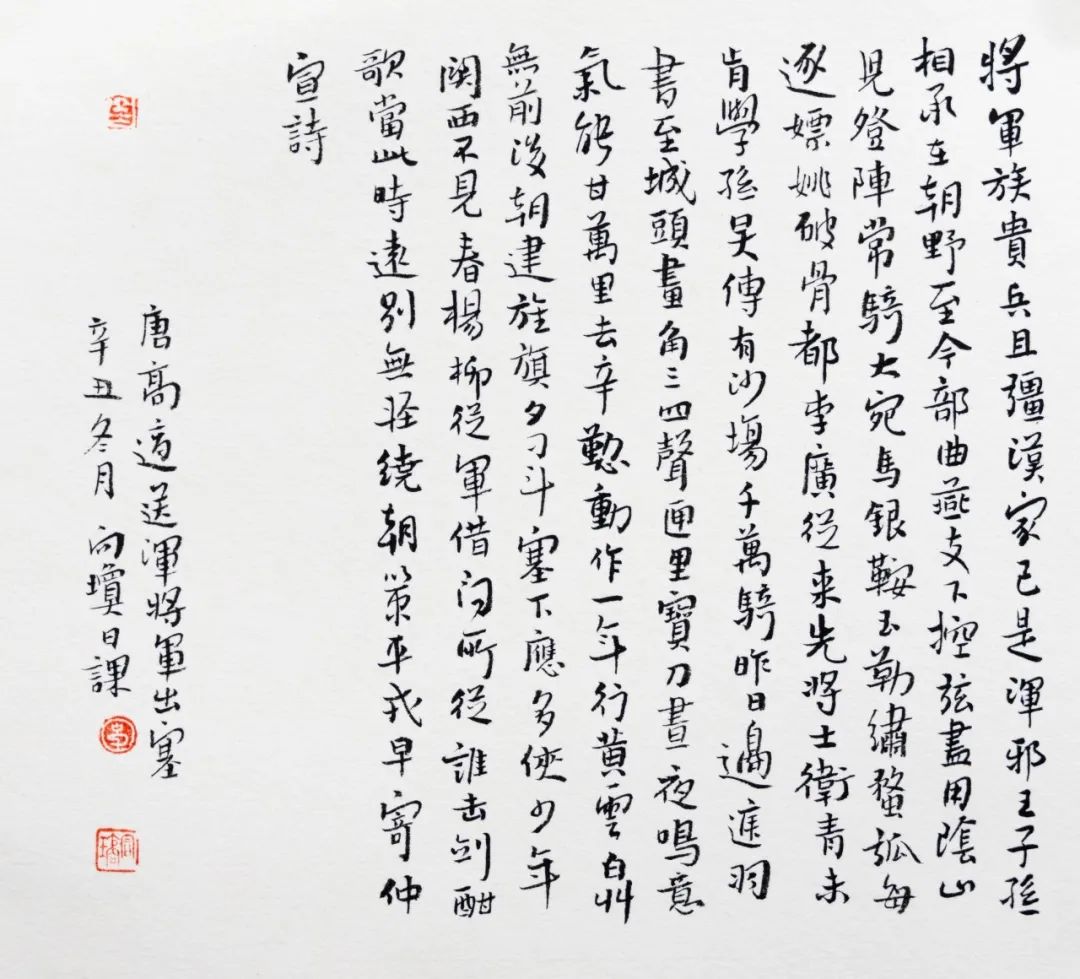 將軍族貴兵且彊漢家已是渾邪王子孫
相承在朝野至今部曲燕支下控弦盡用陰山
兒登陣常騎大宛馬銀鞍玉勒繡蝥弧每
逐嫖姚破骨都李廣從来先將士衛青未
肯學孫吳傳有沙場千萬騎昨日邊庭羽
書至城頭畫角三四聲匣里寶刀晝夜鳴意
氣能甘萬里去辛懃動作一年行黃雲白艸
無前後朝建旌旗夕刁斗塞下應多俠少年
關西不見春楊柳從軍借问所從誰击剑酣
歌當此時遠別無輕繞朝策平戎早寄仲
宣詩
唐高適送渾將軍出塞
辛丑冬月 向瓊日課